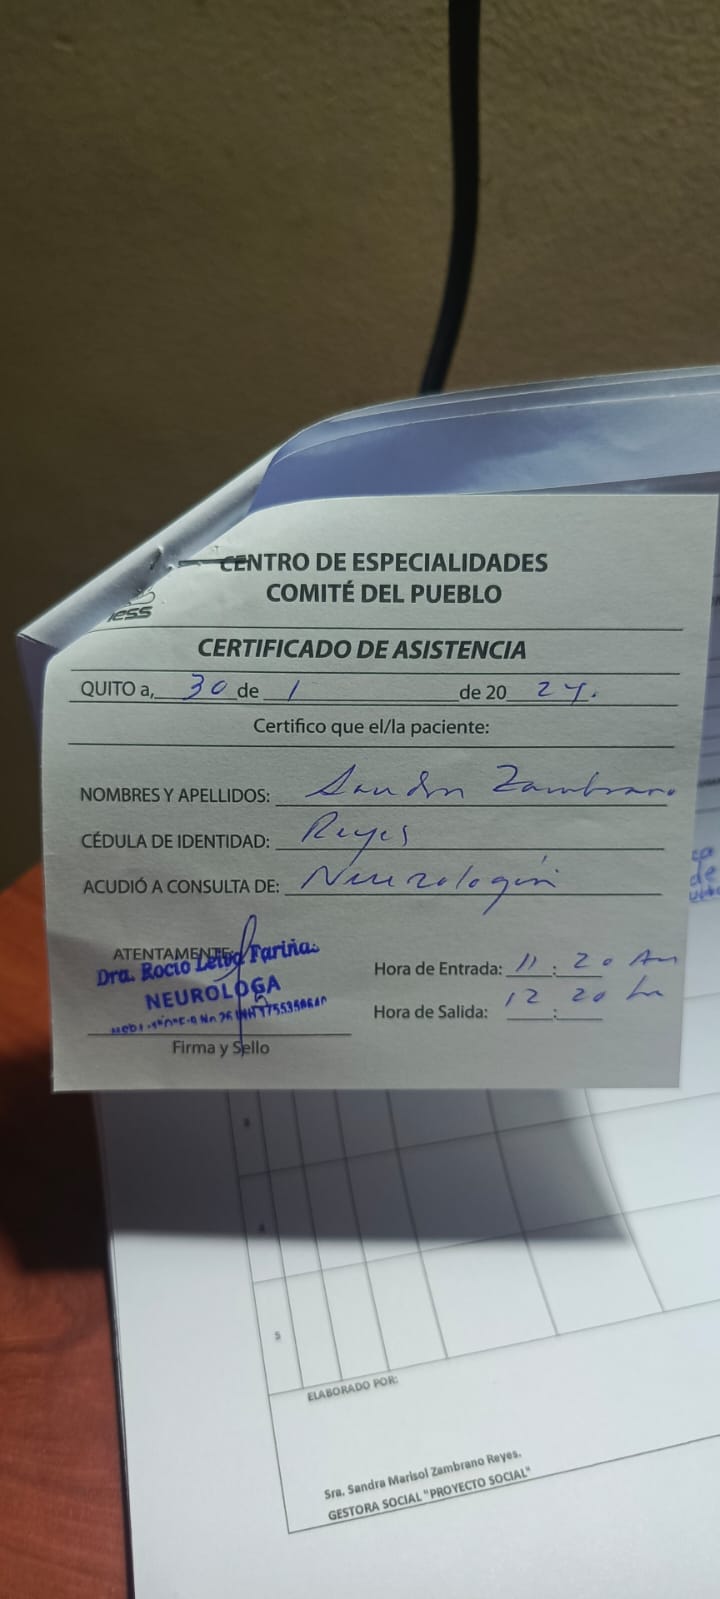 CENTRO DE ESPECIALIDADES
COMITÉ DEL PUEBLO
IESS
CERTIFICADO DE ASISTENCIA
QUITO a, 30 de 1 de 20 24.
Certifico que el/la paciente:
NOMBRES Y APELLIDOS: Sandra Zambrano
CÉDULA DE IDENTIDAD: Reyes
ACUDIÓ A CONSULTA DE: Neurología
ATENTAMENTE:
Dra. Rocío Leiva Fariñas
NEURÓLOGA
Firma y Sello
Hora de Entrada: 11 : 20 Am
Hora de Salida: 12 : 20
4
5
ELABORADO POR:
Sra. Sandra Marisol Zambrano Reyes.
GESTORA SOCIAL "PROYECTO SOCIAL"